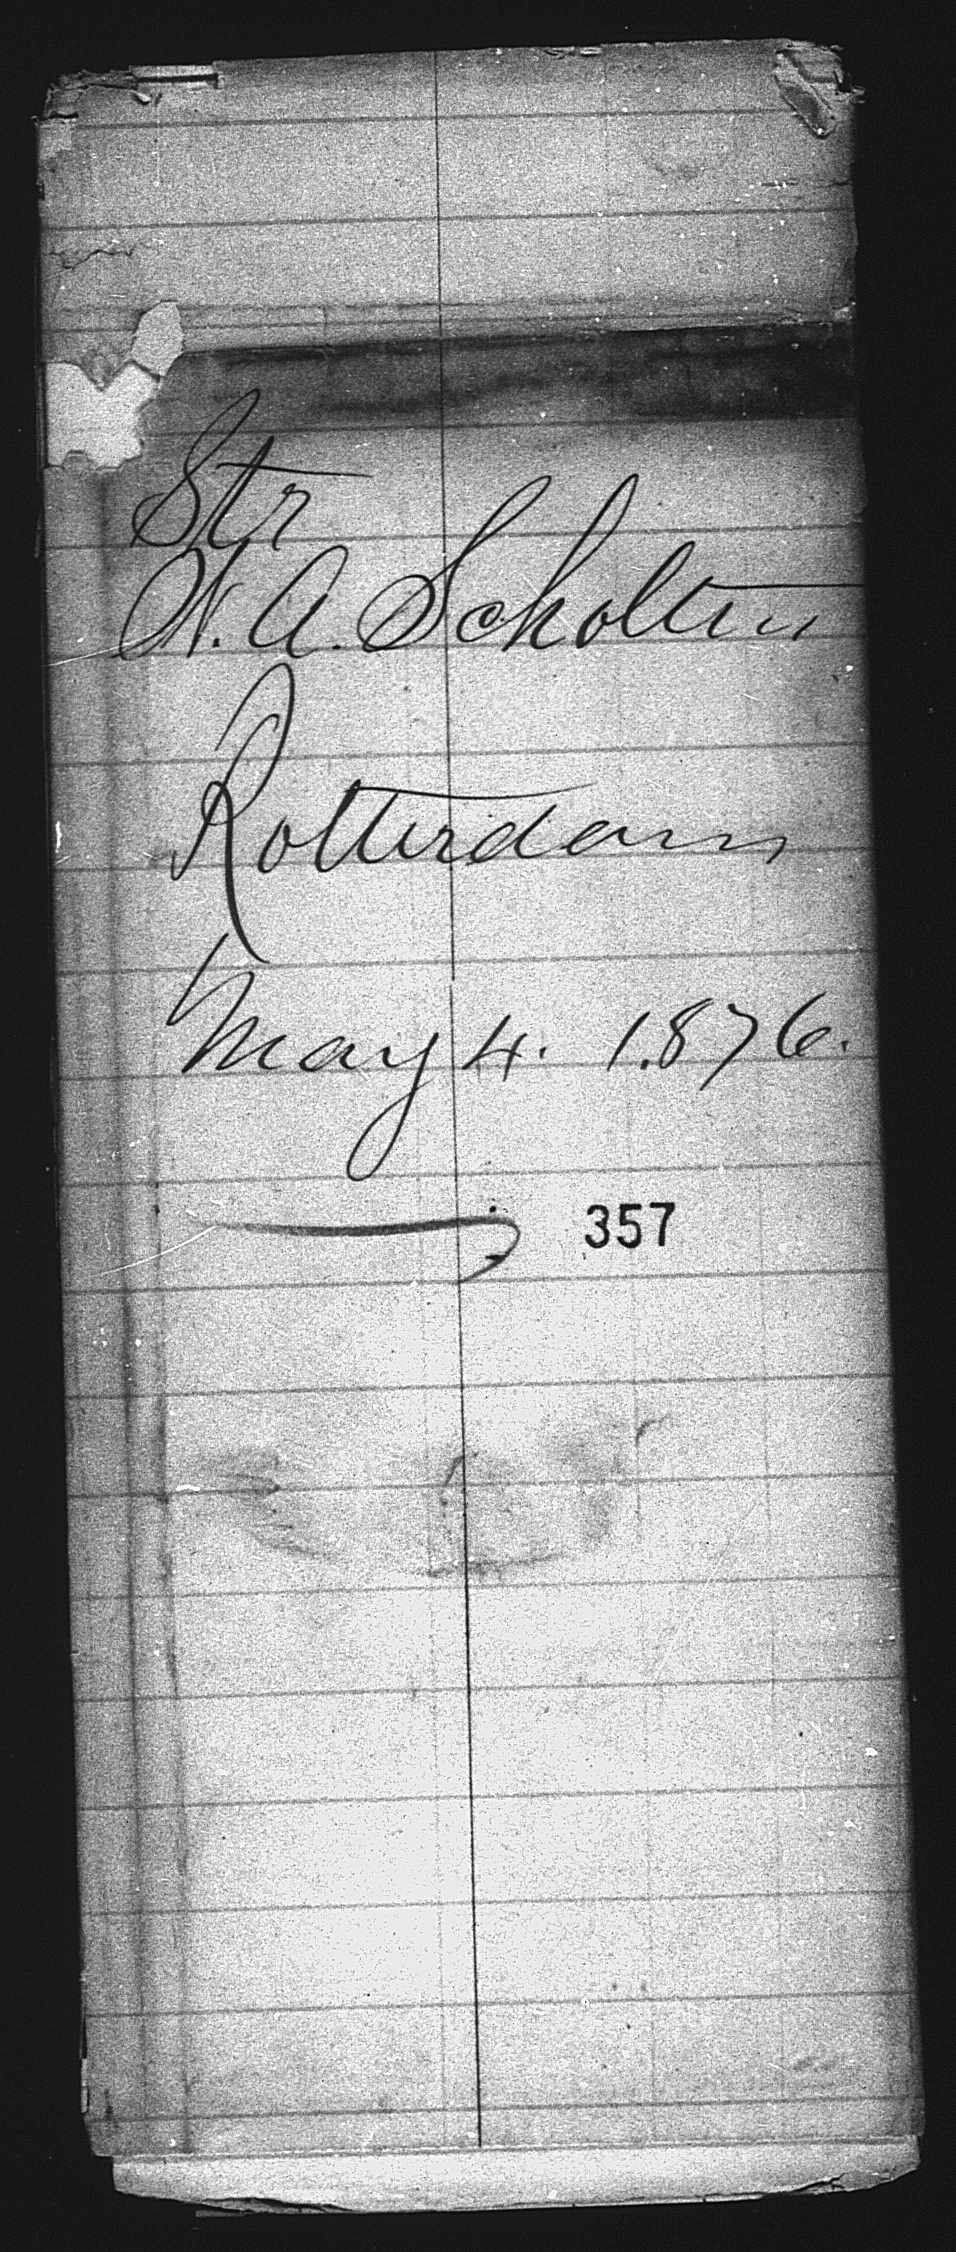 Str
W. A. Scholten
Rotterdam
May 4. 1876.
357